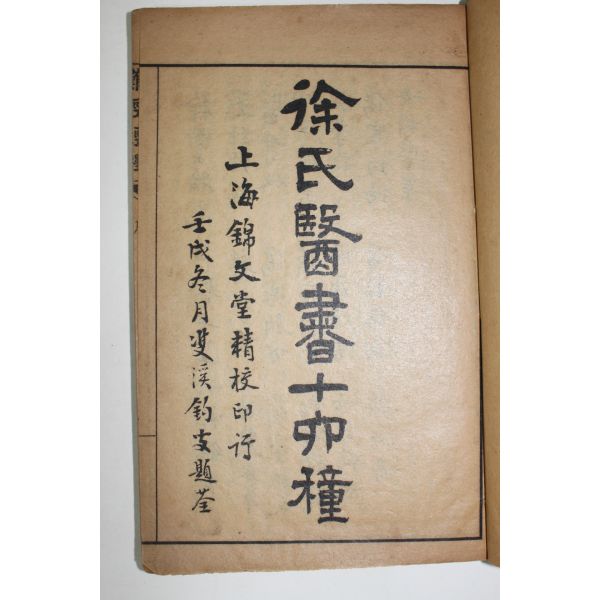 徐氏醫書十六種
上海錦文堂精校印行
壬戌冬月雙溪釣叟題